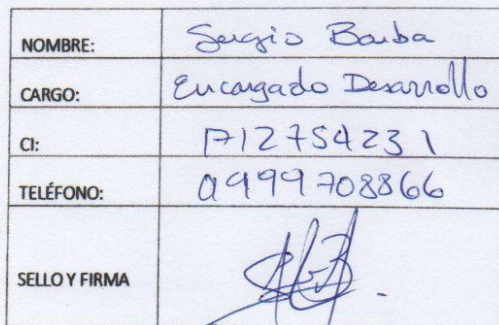 NOMBRE: Sergio Barba
CARGO: Encargado Desarrollo
CI: 1712754231
TELÉFONO: 0999708866
SELLO Y FIRMA